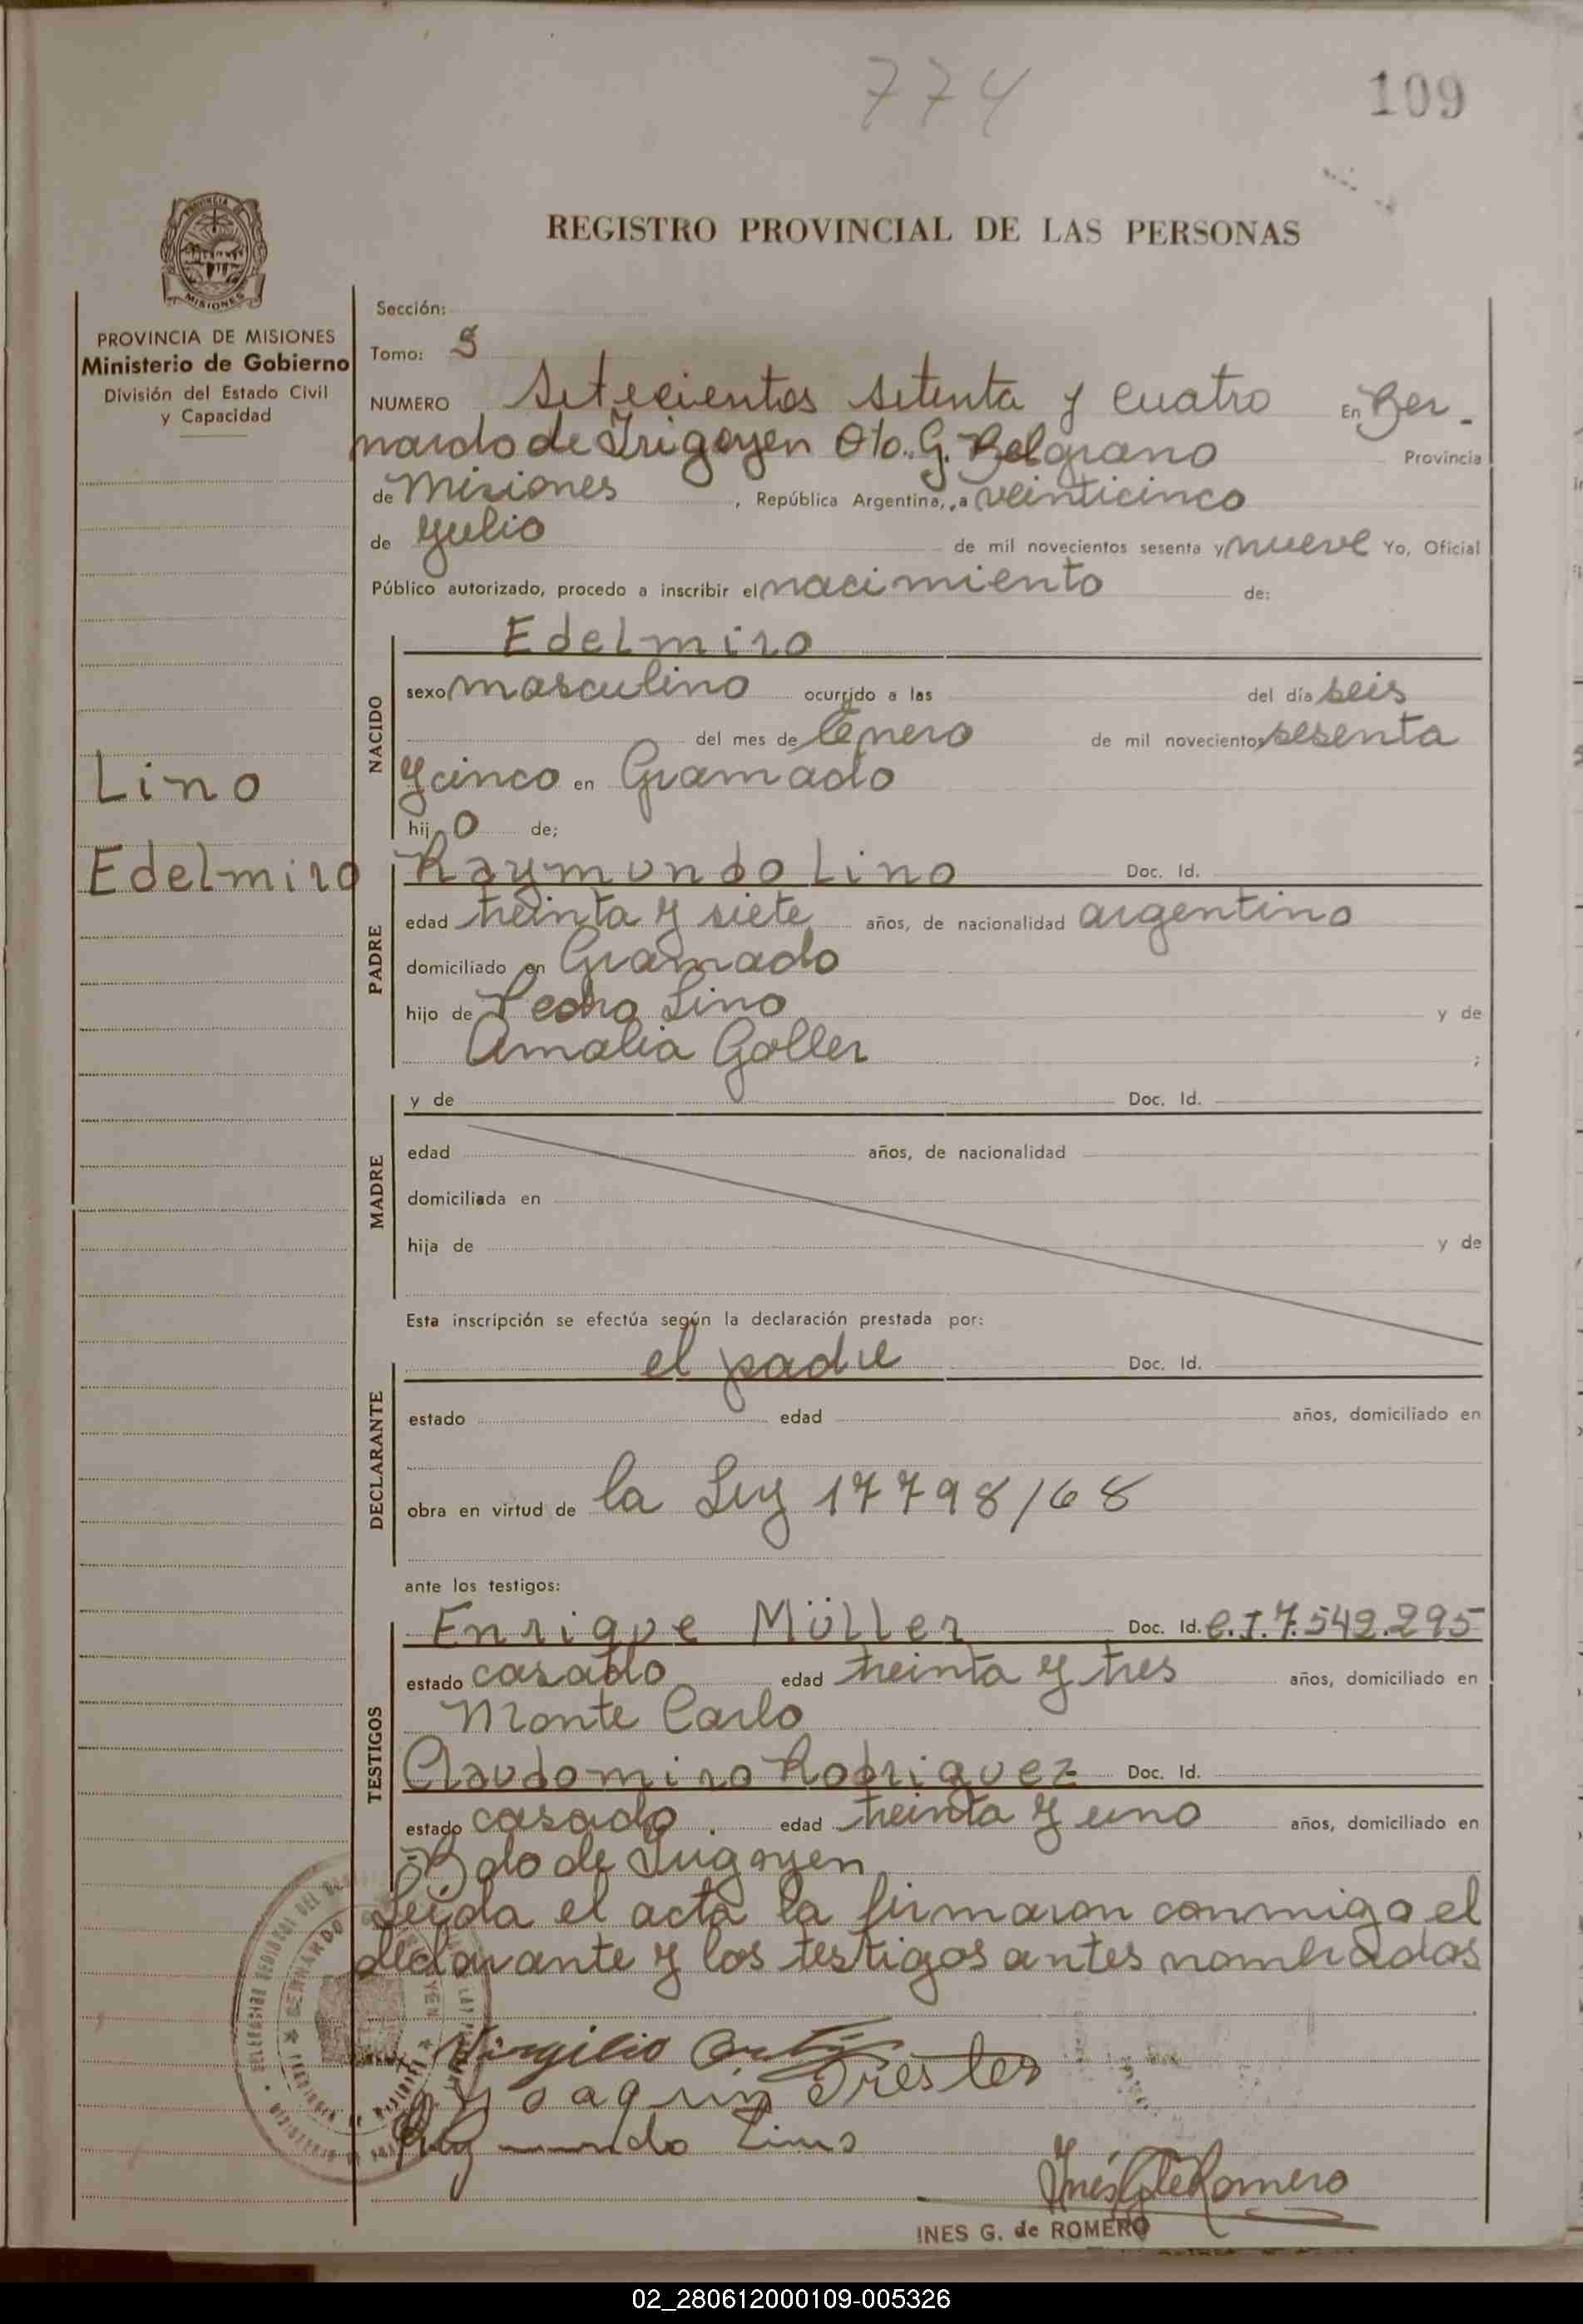 774
109
REGISTRO PROVINCIAL DE LAS PERSONAS
PROVINCIA DE MISIONES
Ministerio de Gobierno
División del Estado Civil
y Capacidad
Lino
Edelmiro
Sección:
Tomo: 5
NUMERO Setecientos setenta y cuatro En Ber-
nardo de Irigoyen Dto. G. Belgrano Provincia
de Misiones, República Argentina, a veinticinco
de Julio de mil novecientos sesenta y nueve Yo, Oficial
Público autorizado, procedo a inscribir el nacimiento de:
NACIDO
Edelmiro
sexo masculino ocurrido a las del día seis
del mes de Enero de mil novecientos sesenta
y cinco en Gramado
hijo de;
PADRE
Raymundo Lino Doc. Id.
edad treinta y siete años, de nacionalidad argentino
domiciliado en Gramado
hijo de Pedro Lino y de
Amalia Goller ;
MADRE
y de Doc. Id.
edad años, de nacionalidad
domiciliada en
hija de y de
Esta inscripción se efectúa según la declaración prestada por:
DECLARANTE
el padre Doc. Id.
estado edad años, domiciliado en
obra en virtud de la Ley 17798/68
ante los testigos:
TESTIGOS
Enrique Müller Doc. Id. C.I. 7.542.295
estado casado edad treinta y tres años, domiciliado en
Monte Carlo
Claudomiro Rodriguez Doc. Id.
estado casado. edad treinta y uno años, domiciliado en
Bdo de Irigoyen
Leida el acta la firmaron conmigo el
declarante y los testigos antes nombrados
Virgilio
Joaquin Trester
Raymundo Lino
Inés G de Romero
INES G. de ROMERO
02_280612000109-005326